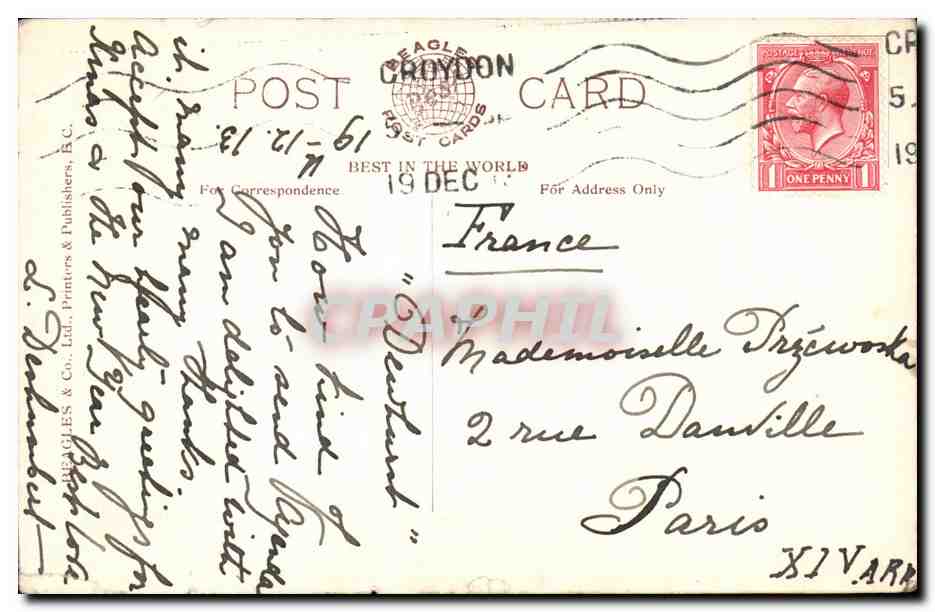 POST CARD
BEAGLES
POST CARDS
BEST IN THE WORLD
For Correspondence
For Address Only
BEAGLES & Co., Ltd., Printers & Publishers, E.C.
CROYDON
19 DEC
CR
5.
19
POSTAGE
ONE PENNY
1 1
19-12.13.
How kind of
you to send Agenda
I am delighted with
it. many many thanks.
Accept our hearty greetings for
Xmas & the New Year Best love
France
Mademoiselle Przéwoska
2 rue Danville
Paris
XIV ARR
CPAPHIL